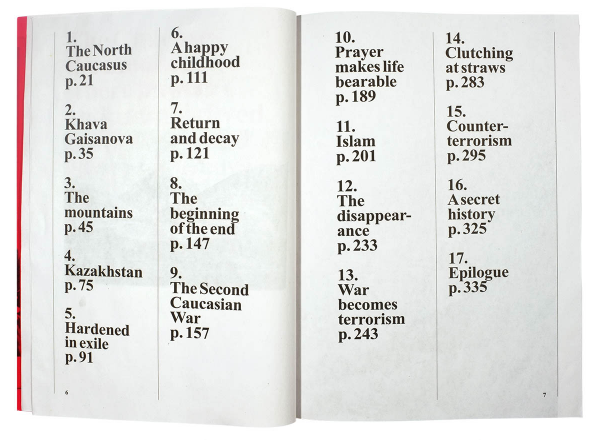 1.
The North
Caucasus
p. 21
2.
Khava
Gaisanova
p. 35
3.
The
mountains
p. 45
4.
Kazakhstan
p. 75
5.
Hardened
in exile
p. 91
6.
A happy
childhood
p. 111
7.
Return
and decay
p. 121
8.
The
beginning
of the end
p. 147
9.
The Second
Caucasian
War
p. 157
6
10.
Prayer
makes life
bearable
p. 189
11.
Islam
p. 201
12.
The
disappear-
ance
p. 233
13.
War
becomes
terrorism
p. 243
14.
Clutching
at straws
p. 283
15.
Counter-
terrorism
p. 295
16.
A secret
history
p. 325
17.
Epilogue
p. 335
7